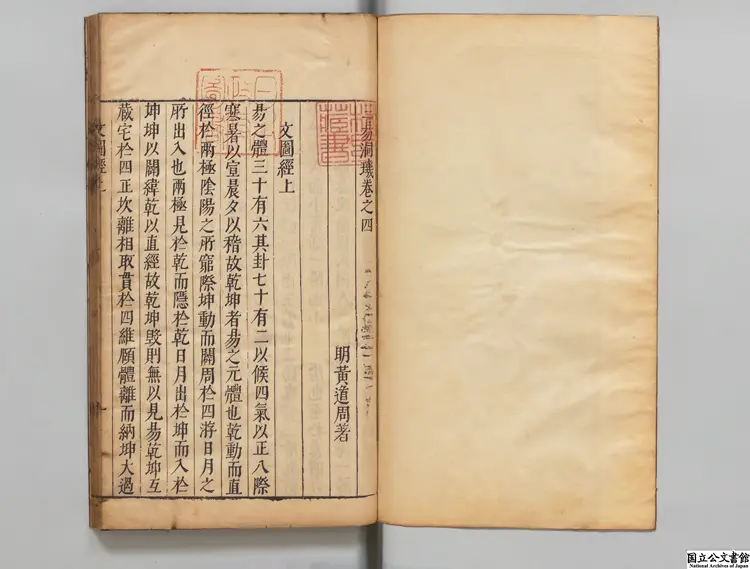 易洞璣卷之四
明黃道周著
文圖經上
易之體三十有六其卦七十有二以候四氣以正八際
寒暑以宣晨夕以稽故乾坤者易之元體也乾動而直
徑於兩極陰陽之所窮際坤動而闢周於四游日月之
所出入也兩極見於乾而隱於乾日月出於坤而入於
坤坤以闢緯乾以直經故乾坤毀則無以見易乾坤互
藏宅於四正坎離相取貫於四維頤體離而納坤大過
文圖經上
日本政府圖書
国立公文書館
National Archives of Japan